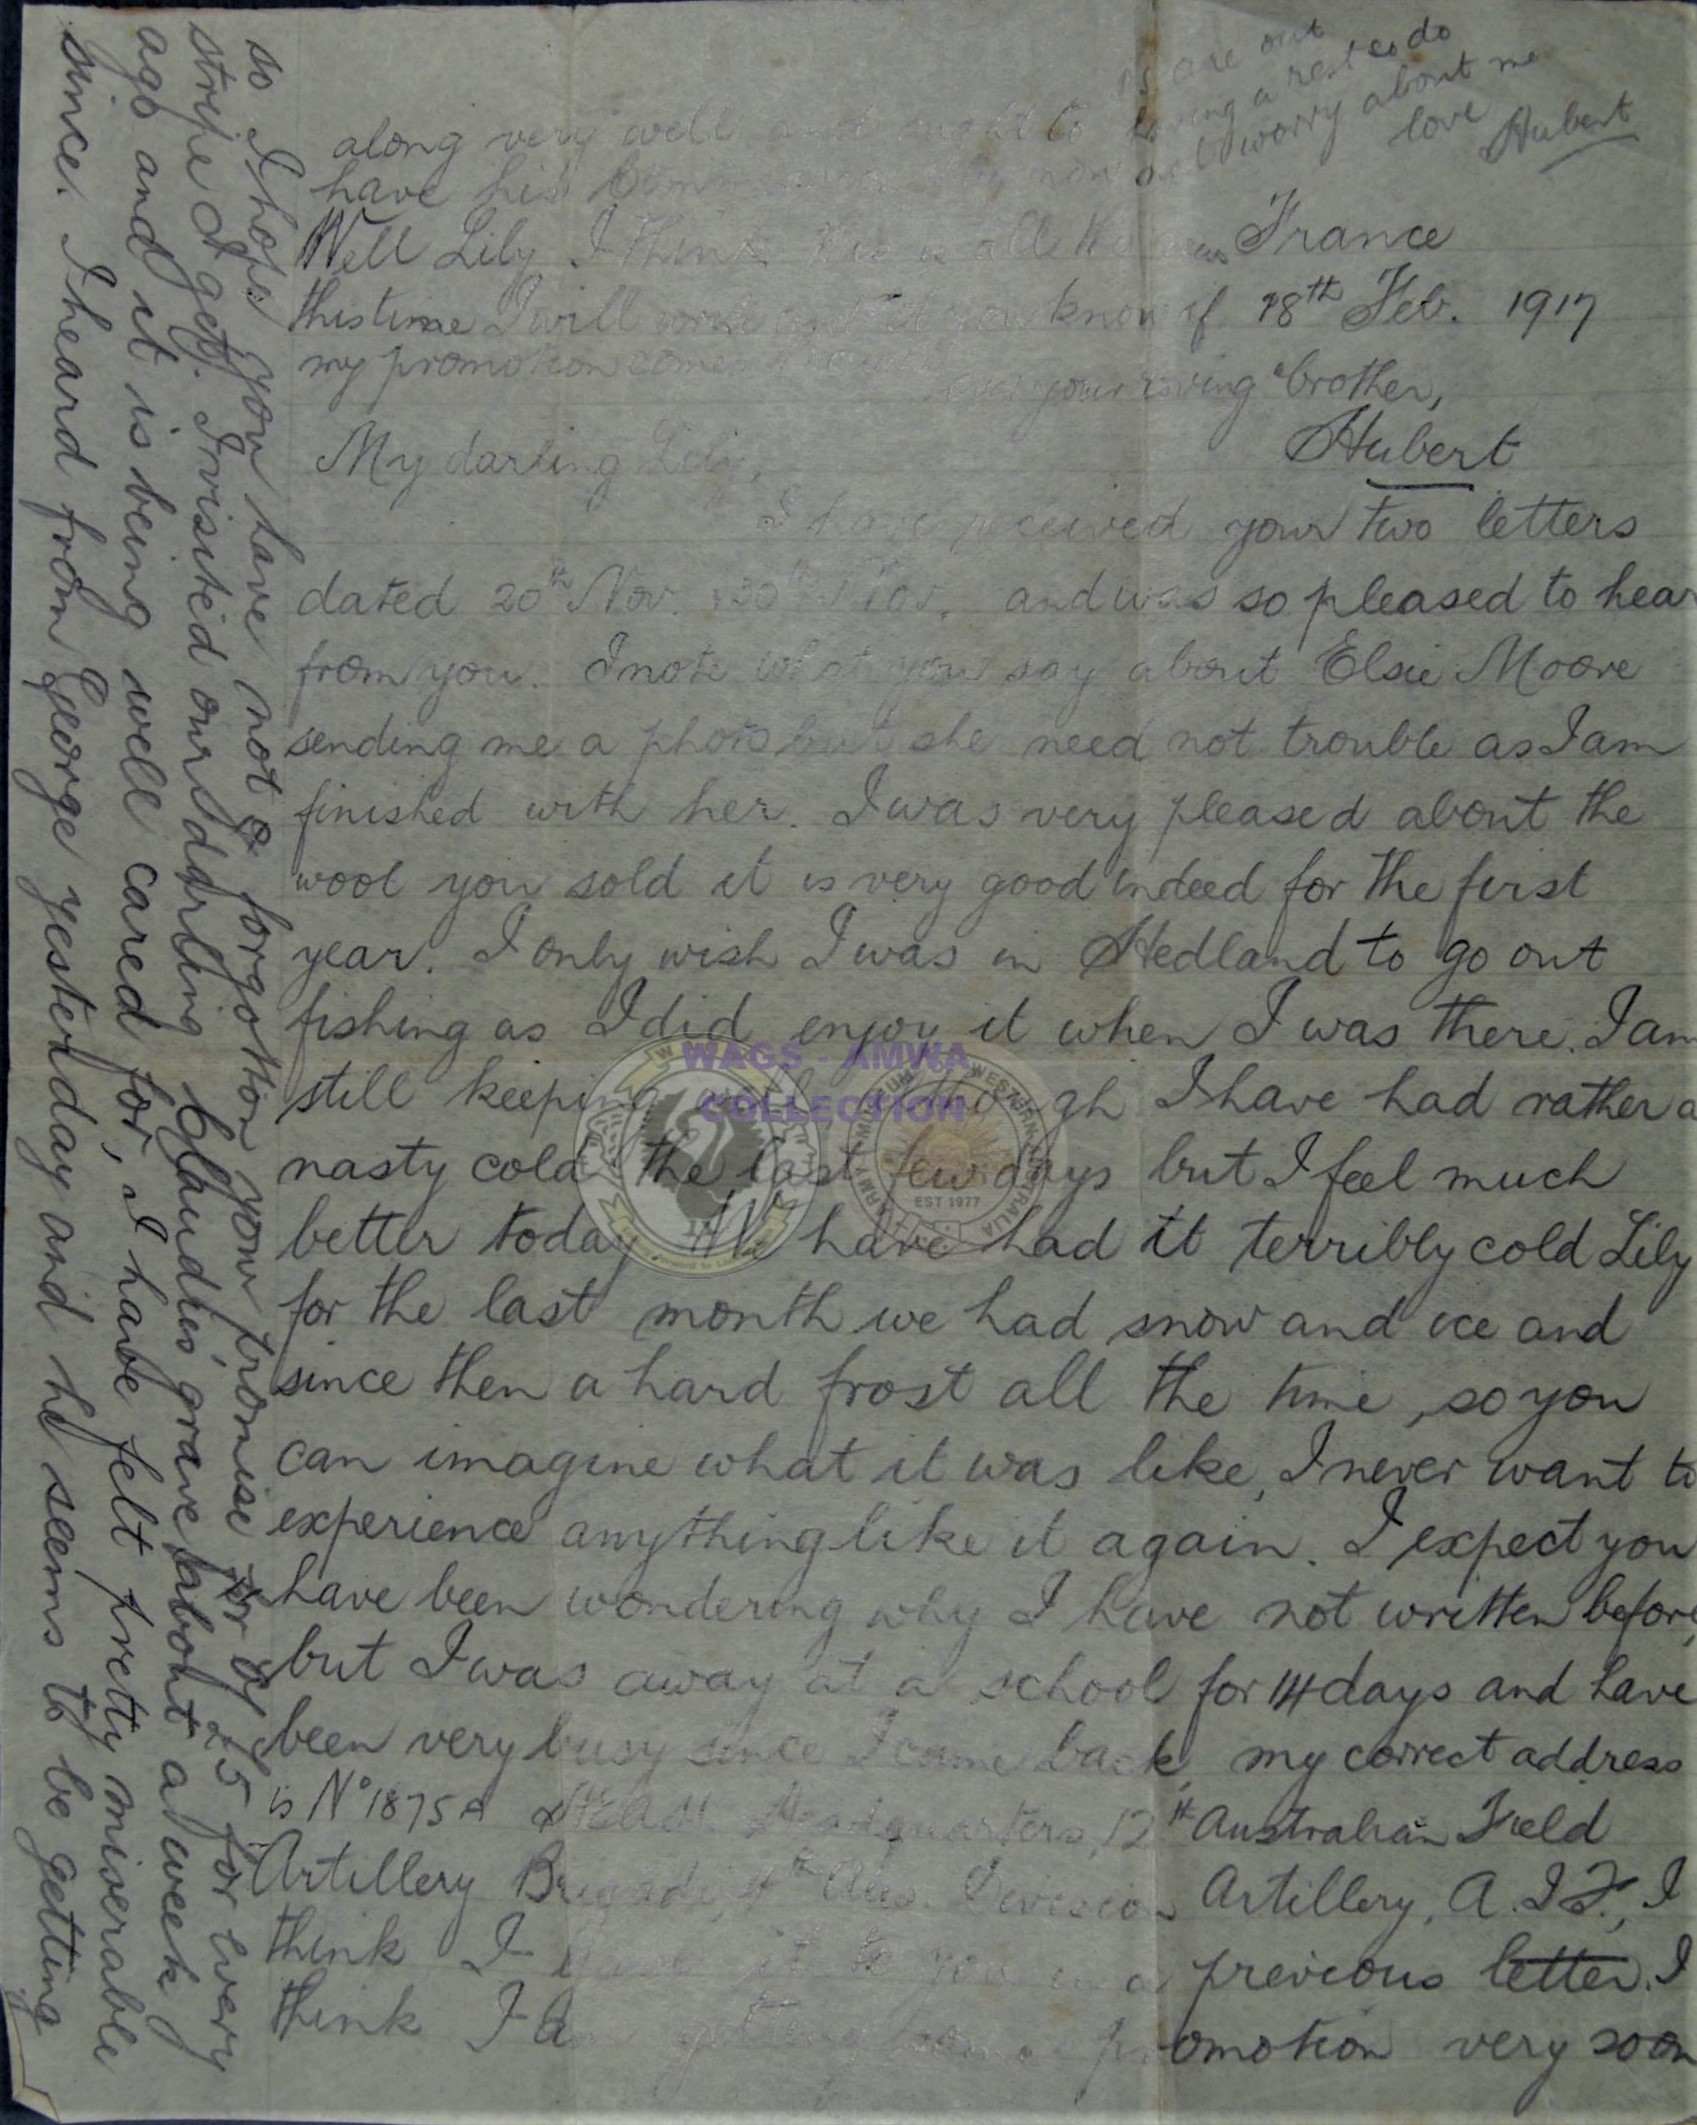 France
18th Feb. 1917
My darling Lily,
I have received your two letters
dated 20th Nov. & 30th Nov. and was so pleased to hear
from you. I note what you say about Elsie Moore
sending me a photo but she need not trouble as I am
finished with her. I was very pleased about the
wool you sold it is very good indeed for the first
year. I only wish I was in Hedland to go out
fishing as I did enjoy it when I was there. I am
still keeping well although I have had rather a
nasty cold the last few days but I feel much
better today. We have had it terribly cold Lily
for the last month we had snow and ice and
since then a hard frost all the time, so you
can imagine what it was like, I never want to
experience anything like it again. I expect you
have been wondering why I have not written before,
but I was away at a school for 14 days and have
been very busy since I came back, my correct address
is No 1875A Headquarters, 12th Australian Field
Artillery Brigade, 4th Aus. Division Artillery, A.I.F., I
think I gave it to you in a previous letter. I
think I am getting some promotion very soon
so I hope you have not forgotten your promise for of £5 for every
stripe I get. I visited our darling Claudie's grave about a week
ago and it is being well cared for, I have felt pretty miserable
since. I heard from George yesterday and he seems to be getting
along very well and ought to
have his commission by now
Well Lily I think this is all the news
this time I will write and let you know if
my promotion comes
ever your loving brother,
Hubert
We are out
having a rest so do
not worry about me
love
Hubert
WAGS - AMWA
COLLECTION
ARMY MUSEUM OF WESTERN AUSTRALIA
EST 1977